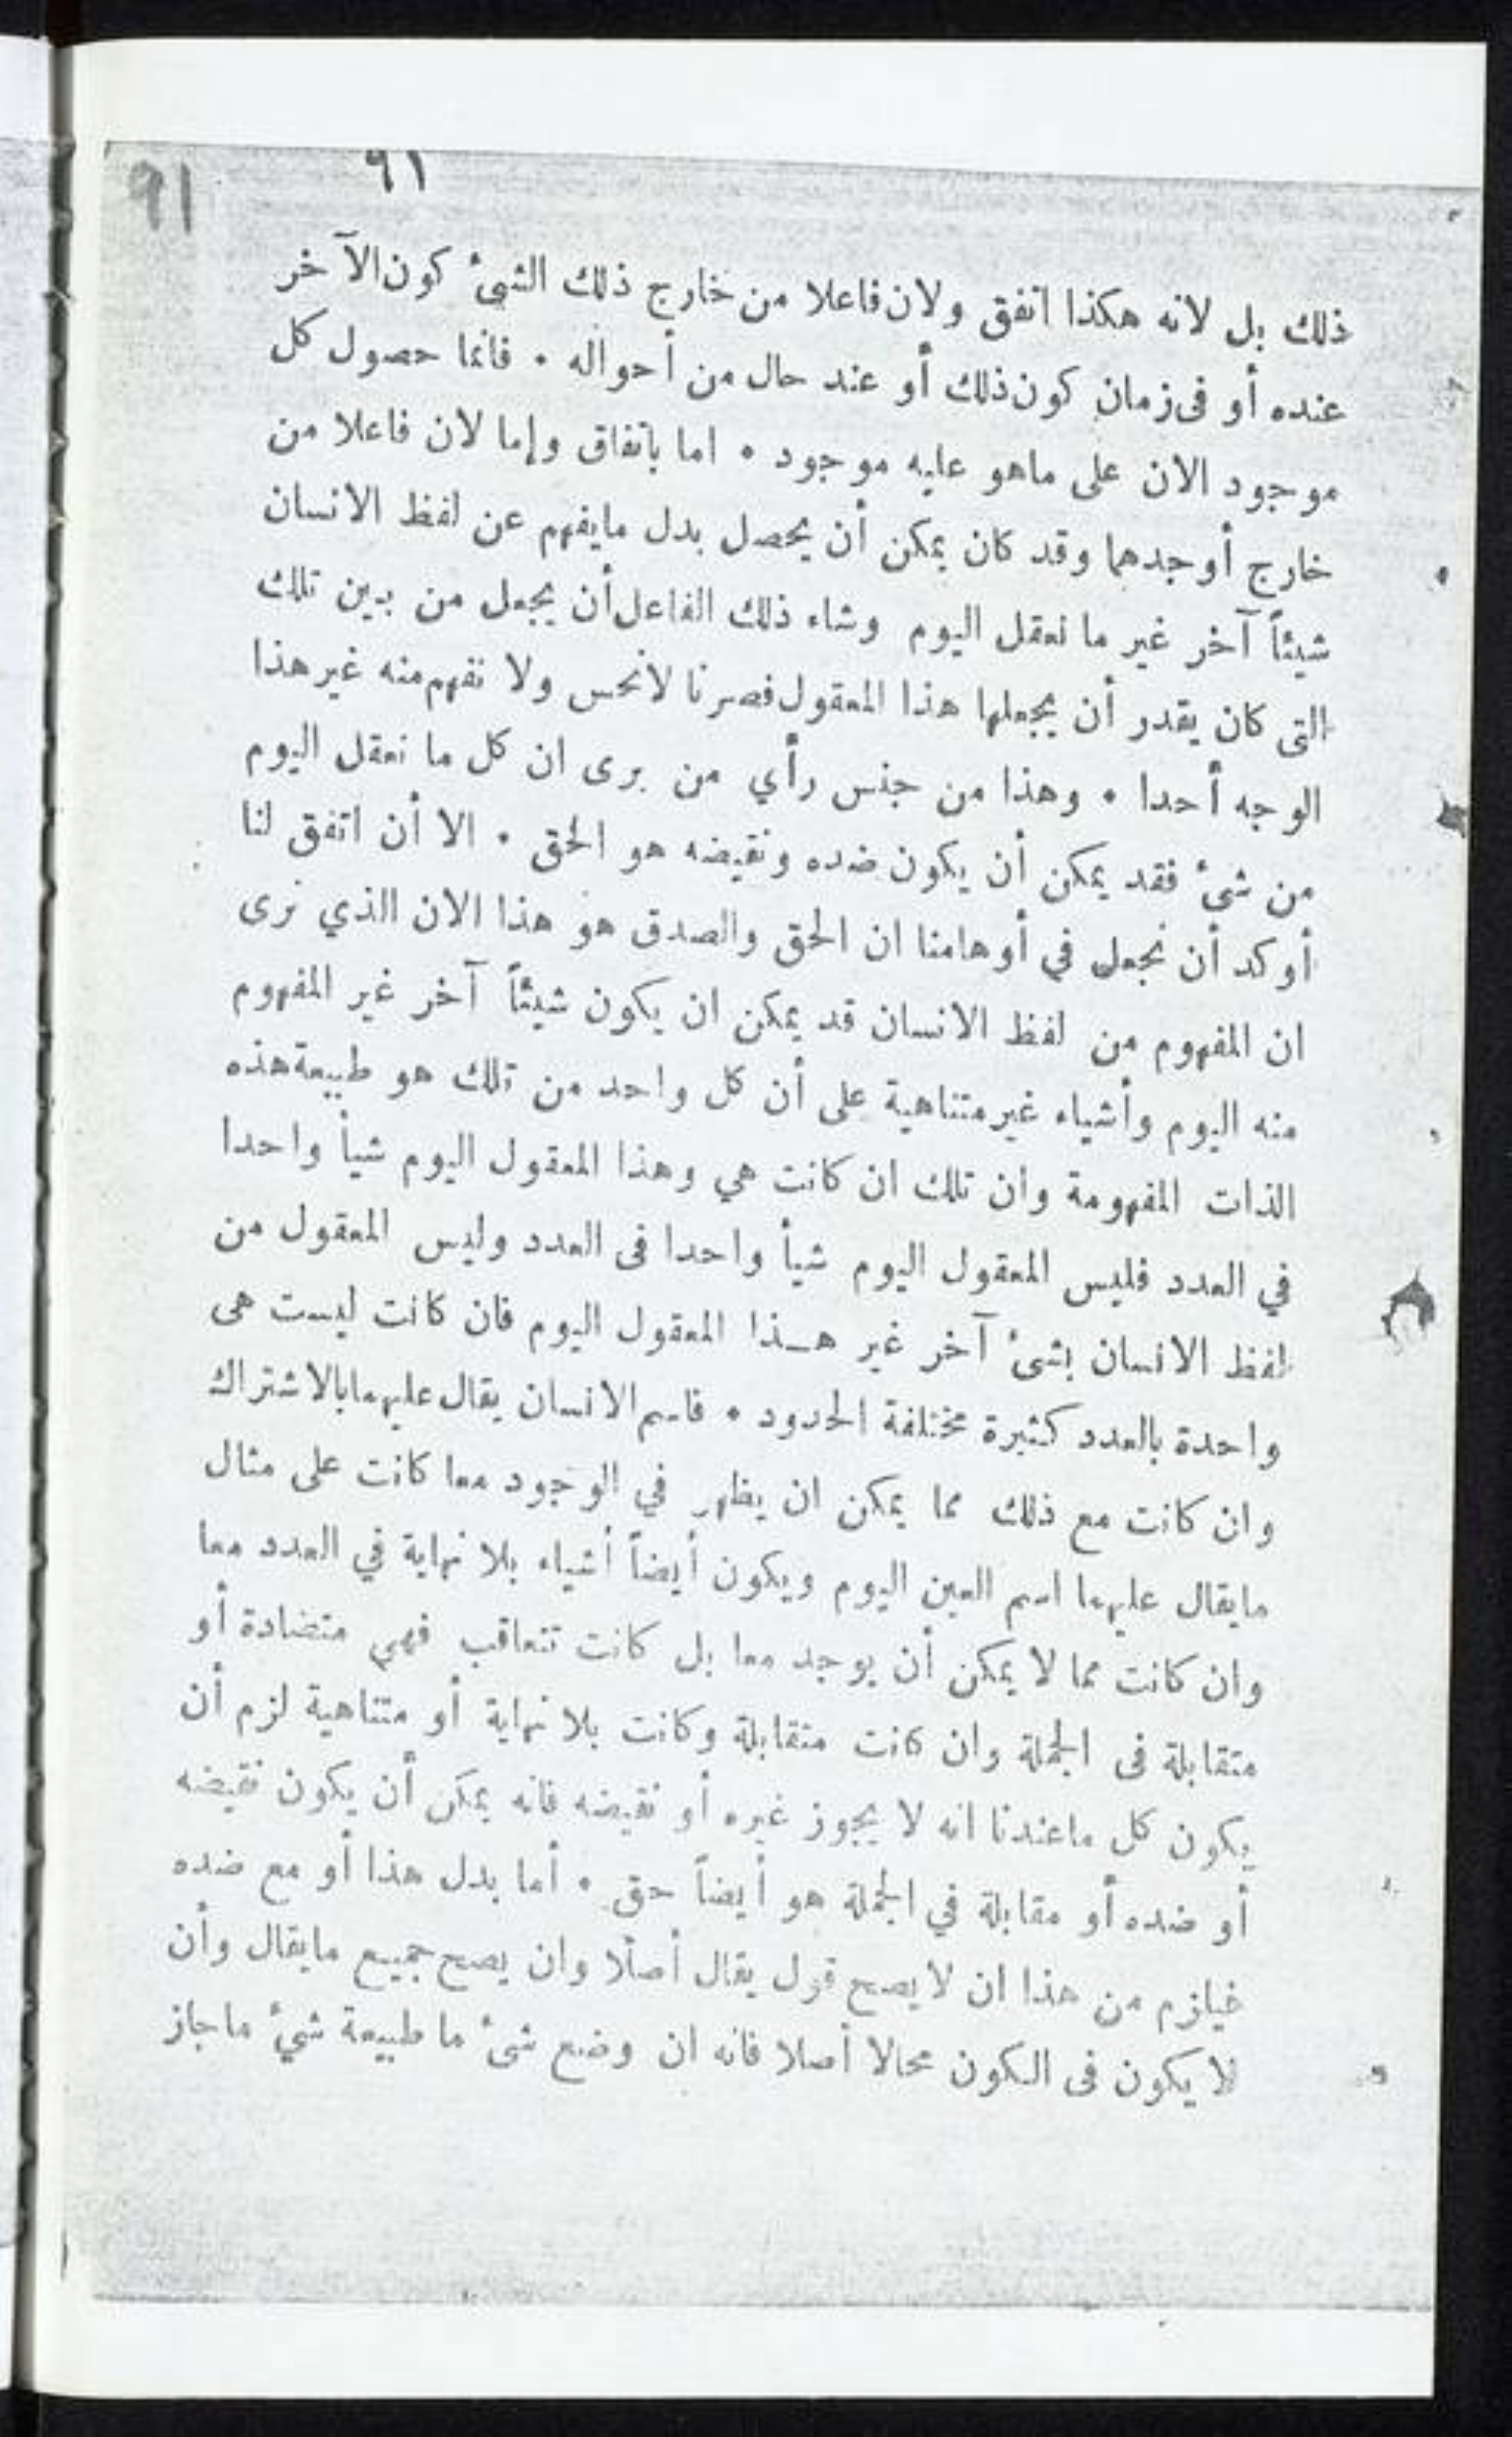 91 ٩١
ذلك بل لانه هكذا اتفق ولان فاعلا من خارج ذلك الشيء كون الآخر
عنده أو فى زمان كون ذلك أو عند حال من أحواله . فانما حصول كل
موجود الان على ماهو عليه موجود . اما باتفاق وإما لان فاعلا من
خارج أوجدهما وقد كان يمكن أن يحصل بدل مايفهم عن لفظ الانسان
شيئاً آخر غير ما نعقل اليوم وشاء ذلك الفاعل أن يجعل من بين تلك
التى كان يقدر أن يجعلها هذا المعقول فصرنا لانحس ولا نفهم منه غير هذا
الوجه أحدا . وهذا من جنس رأي من يرى ان كل ما نعقل اليوم
من شئ فقد يمكن أن يكون ضده ونقيضه هو الحق . الا أن اتفق لنا
أوكد أن نجعل في أوهامنا ان الحق والصدق هو هذا الان الذي نرى
ان المفهوم من لفظ الانسان قد يمكن ان يكون شيئاً آخر غير المفهوم
منه اليوم وأشياء غير متناهية على أن كل واحد من تلك هو طبيعة هذه
الذات المفهومة وان تلك ان كانت هي وهذا المعقول اليوم شيأ واحدا
في العدد فليس المعقول اليوم شيأ واحدا فى العدد وليس المعقول من
لفظ الانسان بشئ آخر غير هــذا المعقول اليوم فان كانت ليست هى
واحدة بالعدد كثيرة مختلفة الحدود . فاسم الانسان يقال عليهما بالاشتراك
وان كانت مع ذلك مما يمكن ان يظهر في الوجود معا كانت على مثال
مايقال عليهما اسم العين اليوم ويكون أيضاً أشياء بلا نهاية في العدد معا
وان كانت مما لا يمكن أن يوجد معا بل كانت تتعاقب فهي متضادة أو
متقابلة فى الجملة وان كانت متقابلة وكانت بلا نهاية أو متناهية لزم أن
يكون كل ماعندنا انه لا يجوز غيره أو نقيضه فانه يمكن أن يكون نقيضه
أو ضده أو مقابلة في الجملة هو أيضاً حق . أما بدل هذا أو مع ضده
فيلزم من هذا ان لايصح قول يقال أصلا وان يصح جميع مايقال وأن
لا يكون فى الكون محالا أصلا فانه ان وضع شئ ما طبيعة شيء ماجاز